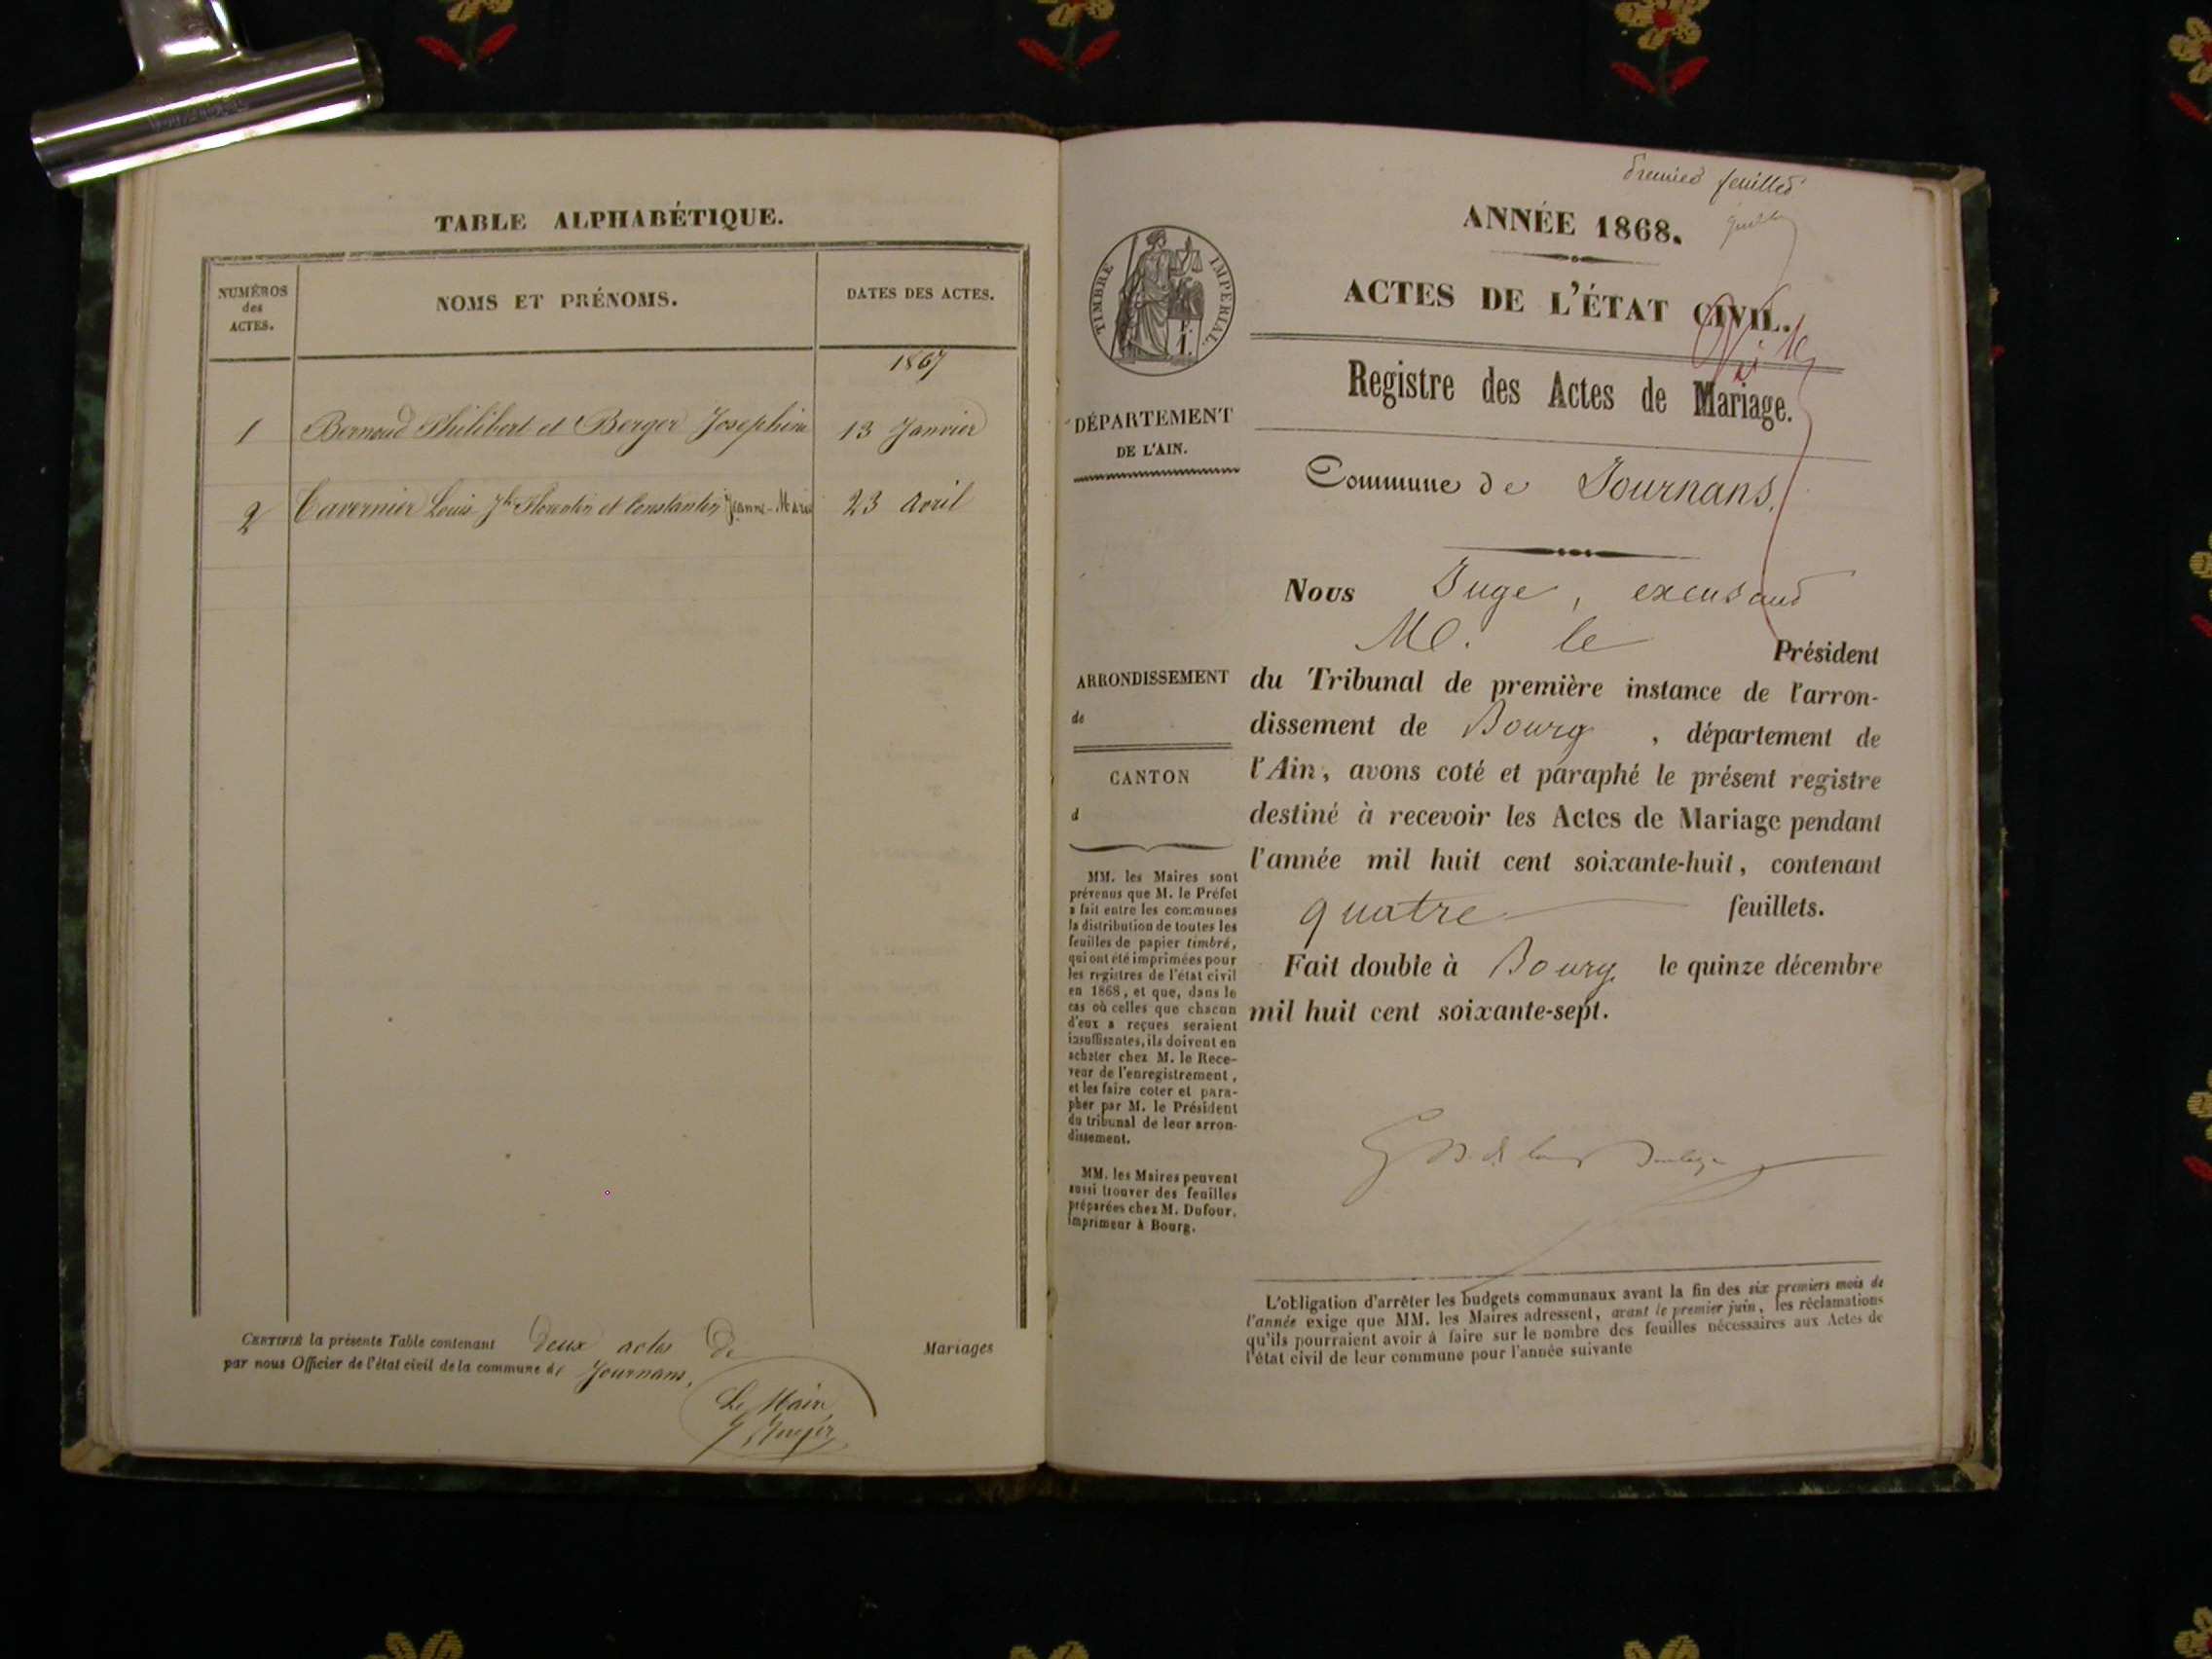 TABLE ALPHABÉTIQUE.
NUMÉROS
des
ACTES.
NOMS ET PRÉNOMS.
DATES DES ACTES.
1867
1 Bernoud Philibert et Berger Josephine 13 Janvier
2 Tavernier Louis Jh Florentin et Constantin Jeanne-Marie 23 avril
CERTIFIÉ la présente Table contenant deux actes de Mariages
par nous Officier de l'état civil de la commune de Journans,
Le Maire
premier feuillet
ANNÉE 1868.
TIMBRE IMPERIAL.
ACTES DE L'ÉTAT CIVIL.
Registre des Actes de Mariage.
DÉPARTEMENT
DE L'AIN.
Commune de Journans.
Nous Juge, excusant
M. le Président
ARRONDISSEMENT
de
CANTON
d
du Tribunal de première instance de l'arron-
dissement de Bourg, département de
l'Ain, avons coté et paraphé le présent registre
destiné à recevoir les Actes de Mariage pendant
l'année mil huit cent soixante-huit, contenant
quatre feuillets.
Fait double à Bourg le quinze décembre
mil huit cent soixante-sept.
MM. les Maires sont
prévenus que M. le Préfet
a fait entre les communes
la distribution de toutes les
feuilles de papier timbré,
qui ont été imprimées pour
les registres de l'état civil
en 1868, et que, dans le
cas où celles que chacun
d'eux a reçues seraient
insuffisantes, ils doivent en
acheter chez M. le Rece-
veur de l'enregistrement,
et les faire coter et para-
pher par M. le Président
du tribunal de leur arron-
dissement.
MM. les Maires peuvent
aussi trouver des feuilles
préparées chez M. Dufour,
imprimeur à Bourg.
L'obligation d'arrêter les budgets communaux avant la fin des six premiers mois de
l'année exige que MM. les Maires adressent, avant le premier juin, les réclamations
qu'ils pourraient avoir à faire sur le nombre des feuilles nécessaires aux Actes de
l'état civil de leur commune pour l'année suivante